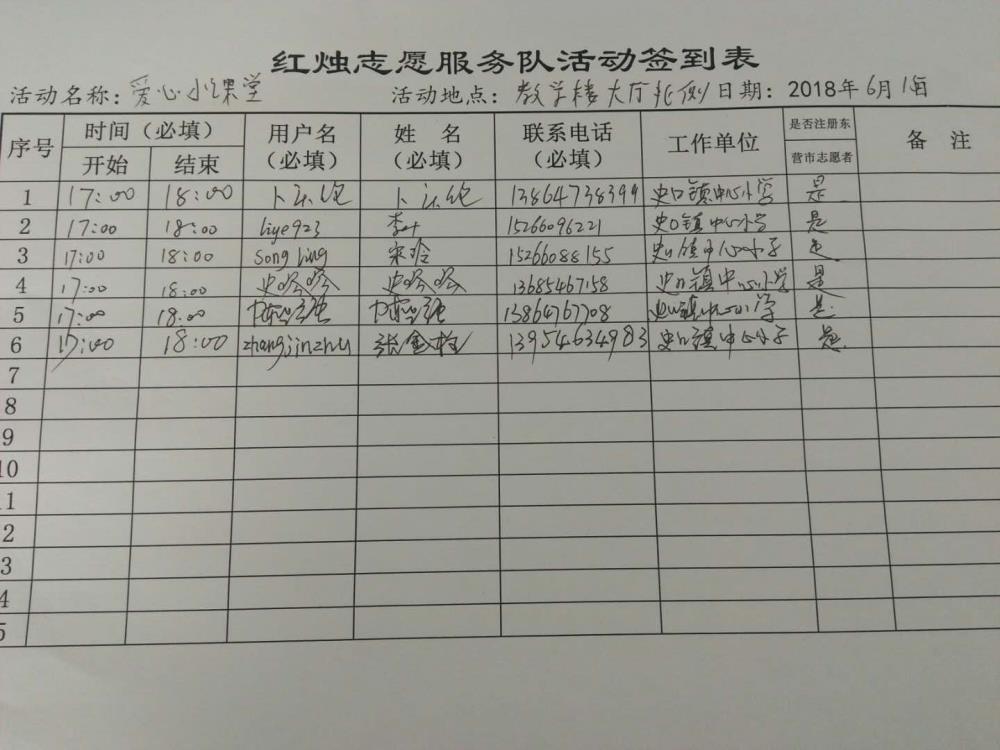 红烛志愿服务队活动签到表
活动名称：爱心小课堂 活动地点：教学楼大厅北侧 日期：2018年6月1日
序号 时间（必填） 用户名（必填） 姓名（必填） 联系电话（必填） 工作单位 是否注册东营市志愿者 备注
开始 结束
1 17:00 18:00 13864738399 史口镇中心小学 是
2 17:00 18:00 liye923 李叶 15266096221 史口镇中心小学 是
3 17:00 18:00 song ling 宋玲 15266088155 史口镇中心小学 是
4 17:00 18:00 13685467158 史口镇中心小学 是
5 17:00 18:00 13864767708 史口镇中心小学 是
6 17:00 18:00 zhangjinzhu 张金柱 13954634983 史口镇中心小学 是
7
8
9
10
11
2
3
4
5